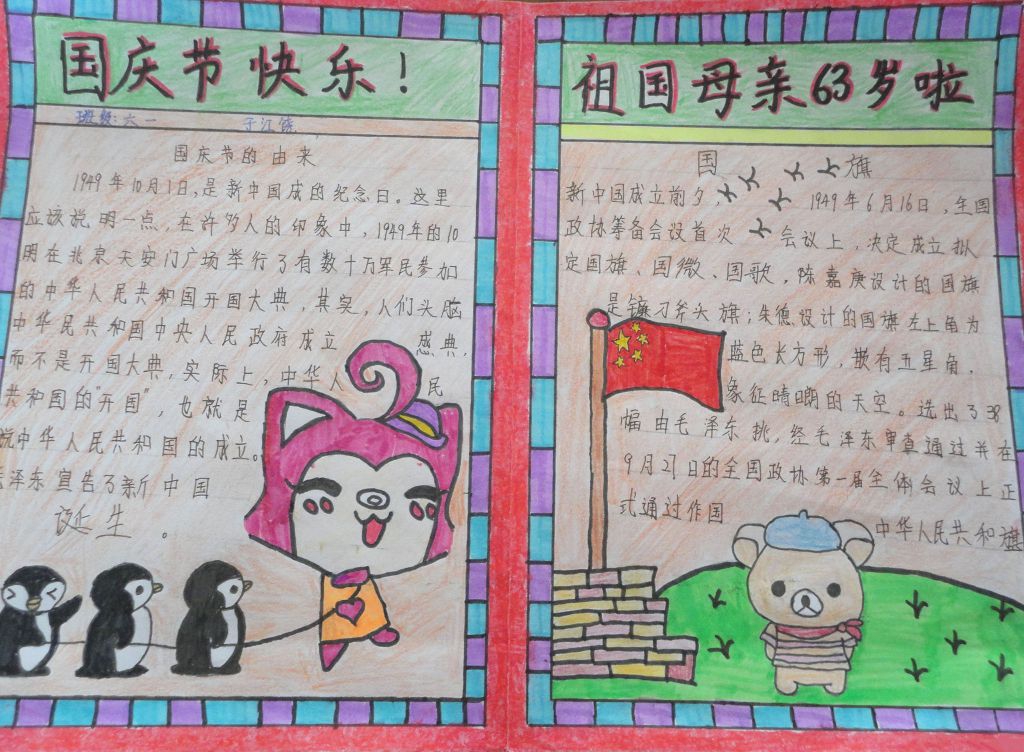 国庆节快乐！
班级：六一
国庆节的由来
1949年10月1日，是新中国成的纪念日。这里
应该说明一点，在许多人的印象中，1949年的10
朋在北京天安门广场举行了有数十万军民参加
的中华人民共和国开国大典，其实，人们头脑
中华民共和国中央人民政府成立 盛典，
而不是开国大典，实际上，中华人 民
共和国的"开国"，也就是
说中华人民共和国的成立。
毛泽东宣告了新中国
诞生。
祖国母亲63岁啦
国 旗
新中国成立前夕， 1949年6月16日，全国
政协筹备会设首次 会议上，决定成立拟
定国旗、国徽、国歌，陈嘉庚设计的国旗
是镰刀斧头旗；朱德设计的国旗左上角为
蓝色长方形，嵌有五星角，
象征晴朗的天空。选出了38
幅由毛泽东挑，经毛泽东审查通过并在
9月27日的全国政协第一届全体会议上正
式通过作国
中华人民共和旗